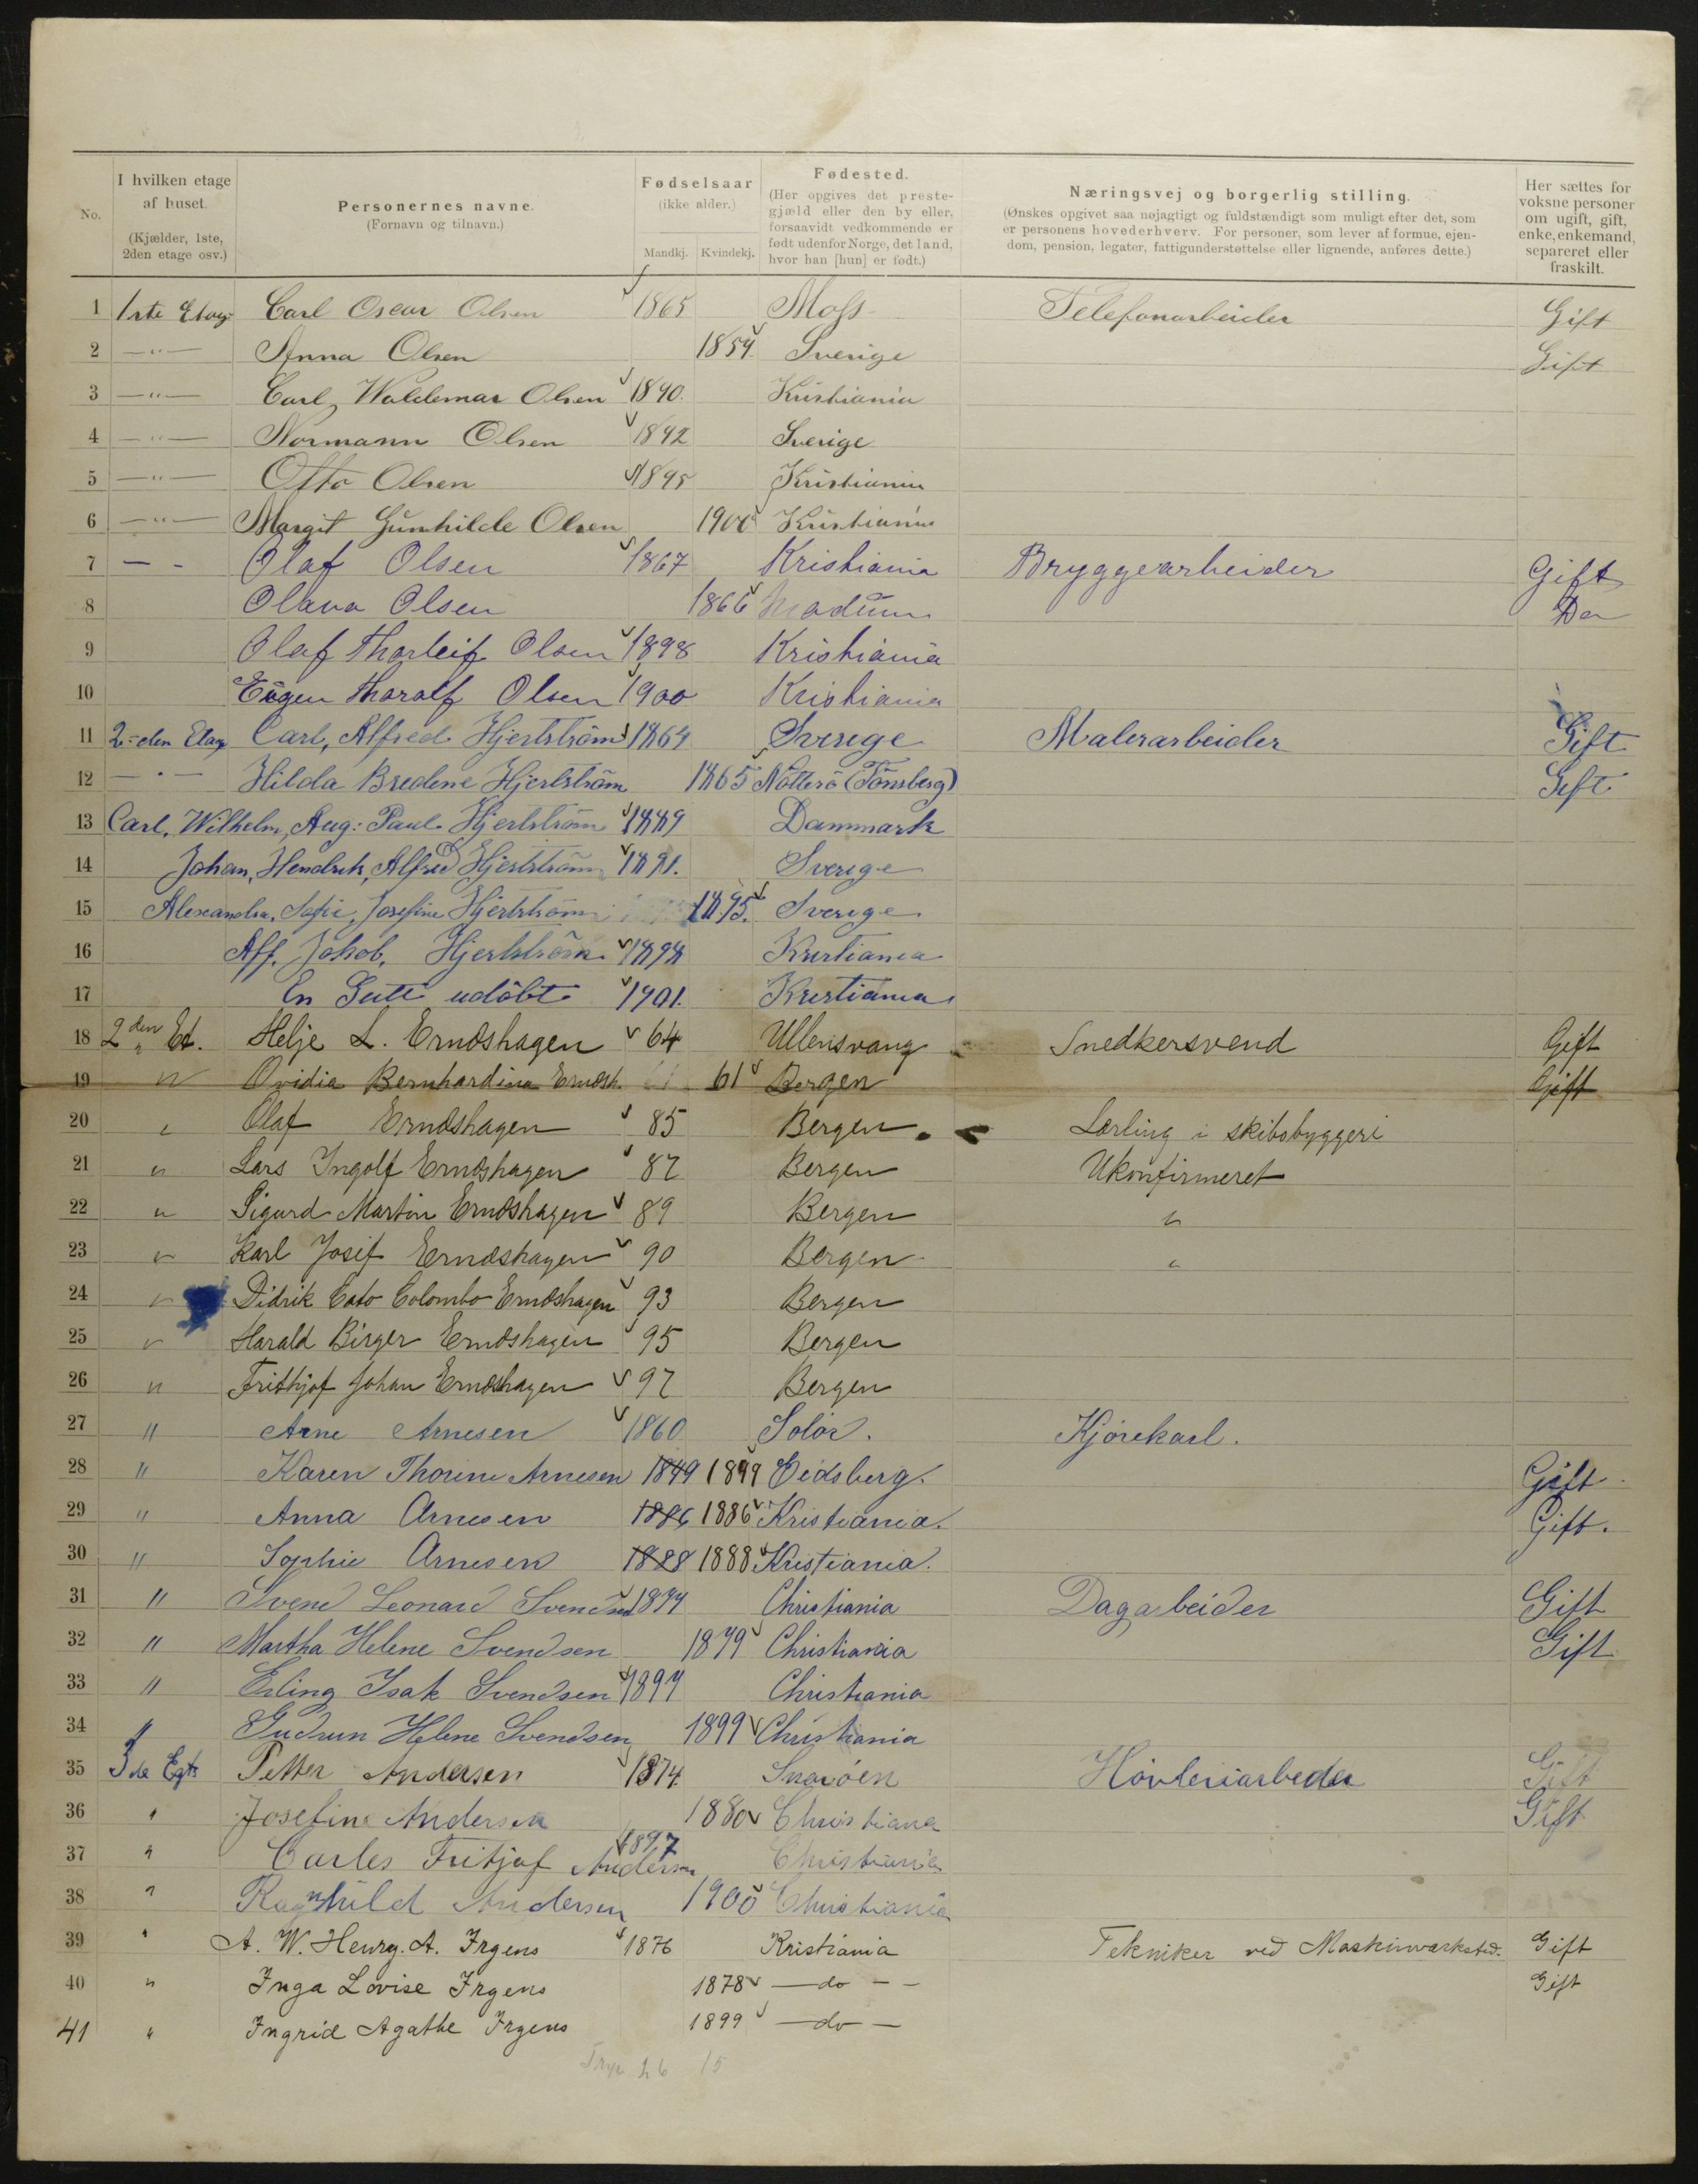 No.
I hvilken etage af huset.
(Kjælder, 1ste, 2den etage osv.)
Personernes navne.
(Fornavn og tilnavn.)
Fødselsaar
(ikke alder.)
Mandkj. Kvindekj.
Fødested.
(Her opgives det prestegjæld eller den by eller, forsaavidt vedkommende er født udenfor Norge, det land, hvor han [hun] er født.)
Næringsvej og borgerlig stilling.
(Ønskes opgivet saa nøjagtigt og fuldstændigt som muligt efter det, som er personens hovederhverv. For personer, som lever af formue, ejendom, pension, legater, fattigunderstøttelse eller lignende, anføres dette.)
Her sættes for voksne personer om ugift, gift, enke, enkemand, separeret eller fraskilt.
1 1ste Etag: Carl Oscar Olsen 1865 Moss Telefonarbeider Gift
2 —"— Anna Olsen 1854 Sverige Gift
3 —"— Carl Waldemar Olsen 1890. Kristiania
4 —"— Normann Olsen 1892 Sverige
5 —"— Otto Olsen 1895 Kristiania
6 —"— Margit Gunhilde Olsen 1900 Kristiania
7 — - Olaf Olsen 1867 Kristiania Bryggearbeider Gift
8 Olava Olsen 1866 Modum Do
9 Olaf Thorleif Olsen 1898 Kristiania
10 Eugen Tharalf Olsen 1900 Kristiania
11 2-den Etag Carl, Alfred Hjertström 1864 Sverige Malerarbeider Gift
12 — " — Hilda Bredene Hjertström 1865 Nötterö (Tönsberg) Gift
13 Carl, Wilhelm, Aug: Paul Hjertström 1889 Dannmark
14 Johan, Hendrik, Alfred Hjertström 1891. Sverige
15 Alexandra, Sofie, Josefine Hjertström 1895. Sverige
16 Alf. Jakob. Hjertström 1898 Kristiania
17 En Gutt udöbt 1901. Kristiania
18 2den Et. Helje L. Erndshagen 64 Ullensvang Snedkersvend Gift
19 " Ovidia Bernhardina Erndsh. 61 Bergen Gift
20 " Olaf Erndshagen 85 Bergen Lærling i skibsbyggeri
21 " Lars Ingolf Erndshagen 87 Bergen Ukonfirmeret
22 " Sigurd Martin Erndshagen 89 Bergen "
23 " Karl Josef Erndshagen 90 Bergen "
24 " Didrik Cato Colombo Erndshagen 93 Bergen
25 " Harald Birger Erndshagen 95 Bergen
26 " Frithjof Johan Erndshagen 97 Bergen
27 " Arne Arnesen 1860 Solør. Kjørekarl.
28 " Karen Thorine Arnesen 1849 1899 Eidsberg. Gift
29 " Anna Arnesen 1886 1886 Kristiania. Gift.
30 " Sophie Arnesen 1888 1888 Kristiania.
31 " Svend Leonard Svendsen 1874 Christiania Dagarbeider Gift
32 " Martha Helene Svendsen 1879 Christiania Gift
33 " Erling Isak Svendsen 1897 Christiania
34 " Gudrun Helene Svendsen 1899 Christiania
35 3de Egt: Petter Andersen 1874 Snarøen Høvleriarbeder Gift
36 " Josefine Andersen 1880 Christiana Gift
37 " Carles Fritjof Andersen 1897 Christiania
38 " Ragnhild Andersen 1900 Christiania
39 " A. W. Henry. A. Irgens 1876 Kristiania Tekniker ved Maskinværksted. Gift
40 " Inga Lovise Irgens 1878 — do — — Gift
41 " Ingrid Agathe Irgens 1899 — do —
26 15